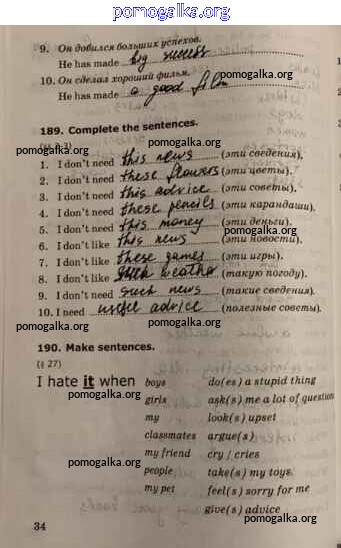 pomogalka.org
9. Он добился больших успехов.
He has made big success
10. Он сделал хороший фильм.
pomogalka.org
He has made a good film
189. Complete the sentences.
pomogalka.org
1. I don't need this news (эти сведения).
2. I don't need these flowers (эти цветы).
3. I don't need this advice (эти советы).
4. I don't need these pencils (эти карандаши).
5. I don't need this money (эти деньги).
pomogalka.org pomogalka.org
6. I don't like this news (эти новости).
7. I don't like these games (эти игры).
8. I don't like such weather (такую погоду).
9. I don't need such news (такие сведения).
10. I need useful advice (полезные советы).
pomogalka.org pomogalka.org
190. Make sentences.
(§ 27)
I hate it when boys do(es) a stupid thing
pomogalka.org
girls ask(s) me a lot of question
my look(s) upset
classmates argue(s)
my friend cry / cries
pomogalka.org
people take(s) my toys.
my pet feel(s) sorry for me
give(s) advice
pomogalka.org
34
pomogalka.org